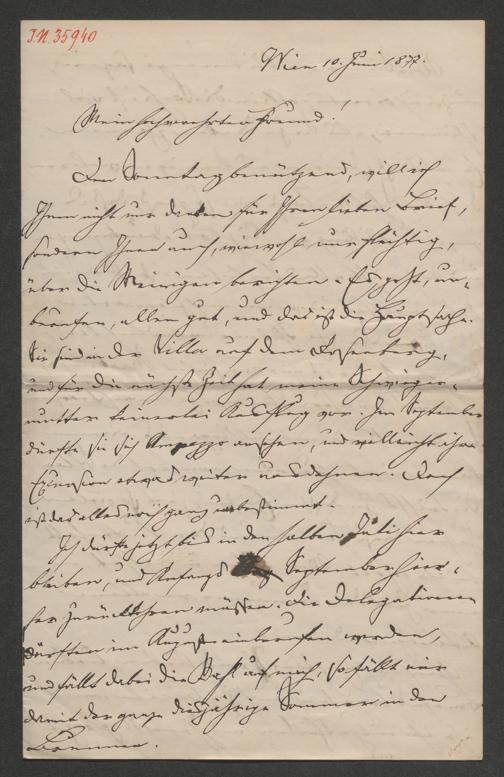 J.N. 35940
Wien 10. Juni 1877.
Mein hochverehrter Freund!
Den Sonntag benützend, will ich
Ihnen nicht nur danken für Ihren lieben Brief,
sondern Ihnen auch, wiewohl nur flüchtig,
über die Meinigen berichten. Es geht, un-
berufen, allen gut, und das ist die Hauptsache.
Sie sind in der Villa auf dem Rosenberg,
und für die nächste Zeit hat meine Schwieger-
mutter keinerlei Ausflug vor. Im September
dürfte sie sich Ampezzo ansehen, und vielleicht ihre
Excursion etwas weiter ausdehnen. Doch
ist das alles noch ganz unbestimmt.
Ich dürfte jetzt bis in den halben Juli hier
bleiben, und Anfangs September hier-
her zurückkehren müssen. Die Delegationen
dürften im August einberufen werden,
und fällt dabei die Wahl auf mich, so fällt mir
damit der ganze diesjährige Sommer in den
Brunnen.